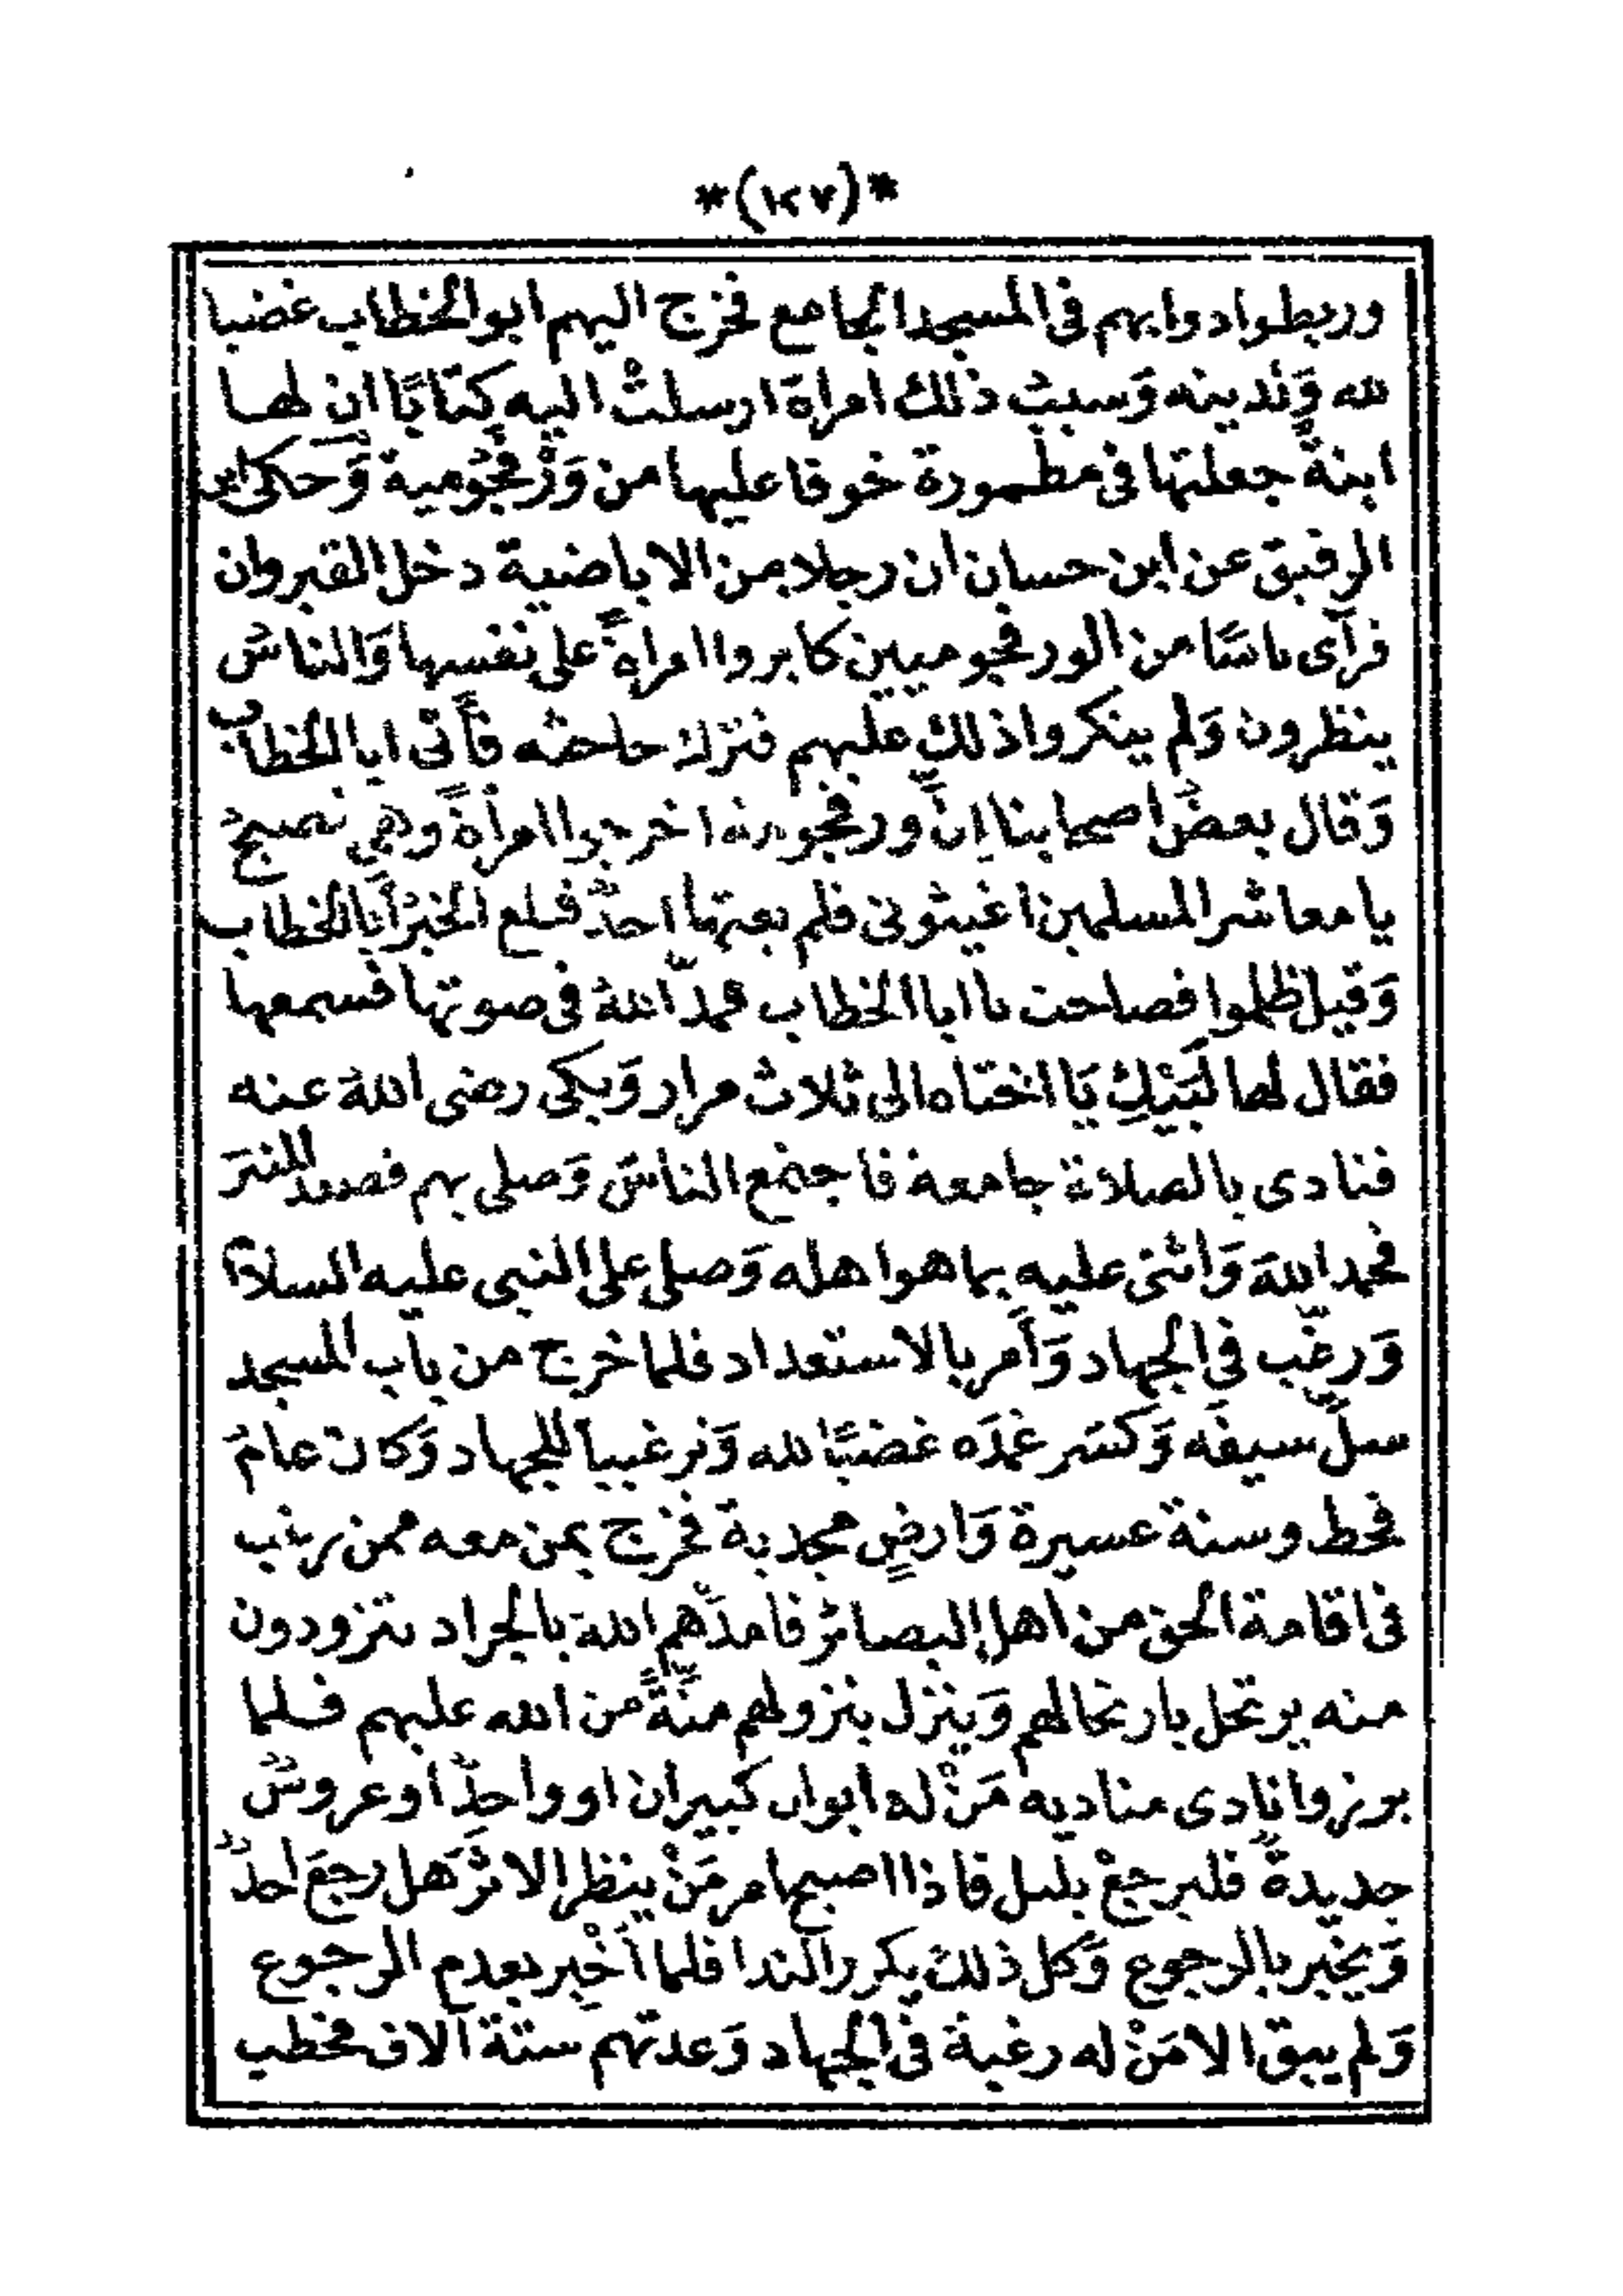 *(١٢٧)*
وربطوا دوابهم فى المسجد الجامع فخرج اليهم ابو الخطاب غضبا
لله وَلدينه وَسببُ ذلك امراة ارسلتْ اليه كِتَابًا ان لها
ابنةً جعلتها فى مطمورة خوفا عليها من وَرْفَجُومية وَحكى ابن
الرقيق عن ابن حسان ان رجلا من الاباضية دخل القيروان
فرأى ناسًا من الورفجوميين كابروا امراةً على نفسها وَالناسُ
ينظرون وَلم ينكروا ذلك عليهم فترك حاجته فأتى ابا الخطاب
وَقال بعضُ اصحابنا إنَّ ورفجومة اخرجوا امرأةً وهي تصيحُ
يا معاشر المسلمين اغيثونى فلم يغثها احدٌ فبلغ الخبرُ أبا الخطاب
وَقيل ظلموا فصاحت يا ابا الخطاب فمدّ اللهُ فى صوتها فسمعها
فقال لها لَبَّيْكِ يَا اختاه الى ثلاث مرار وَبكى رضى اللهُ عنه
فنادى بالصلاة جامعة فاجتمع الناسُ وَصلى بهم فصعد المنبَر
فحمد اللهَ وَاثنى عليه بما هو اهله وَصلى على النبى عليه السلام
وَرغّب في الجهاد وَأمر بالاستعداد فلما خرج من باب المسجد
سلّ سيفَه وَكسَر غمدَه غضبًا لله وَترغيبا للجهاد وَكان عامَ
قحط وسنة عسيرة وَارضٍ مجدبة فخرج بمن معه ممن يرغب
فى اقامة الحق من اهل البصائر فامدَّهم اللهَ بالجراد يتزودون
منه يرتحل بارتحالهم وَينزل بنزولهم منّةً من الله عليهم فلما
برزوا نادى مناديه مَنْ له أبوان كبيران او واحدٌ او عروسٌ
جديدةٌ فليرجعْ بليل فاذا اصبح امر مَنْ ينظر الاثرَ هل رجعَ احدٌ
وَيخبر بالرجوع وَكل ذلك يكرر الندا فلما أُخْبِر بعدم الرجوع
وَلم يبق الا مَنْ له رغبة فى الجهاد وَعدتهم ستة آلاف فخطب